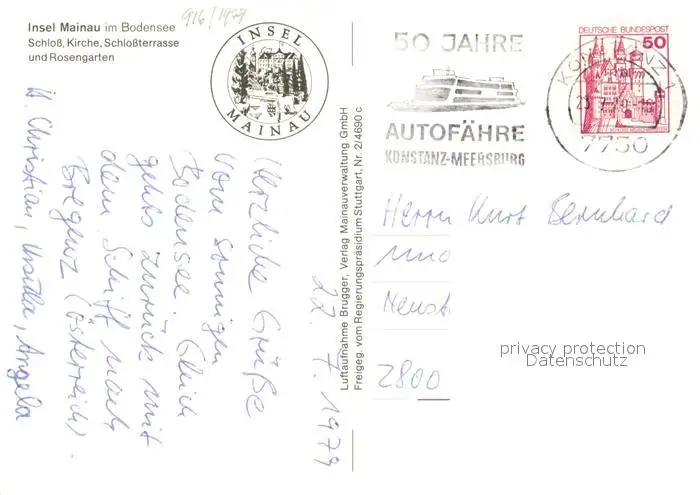 916/1979
Insel Mainau im Bodensee
Schloß, Kirche, Schloßterrasse
und Rosengarten
INSEL
MAINAU
50 JAHRE
AUTOFÄHRE
KONSTANZ-MEERSBURG
DEUTSCHE BUNDESPOST
50
KONSTANZ
7750
22. 7. 1979
Herzliche Grüße
vom sonnigen
Bodensee. Gleich
gehts zurück mit
dem Schiff nach
Bregenz (Österreich).
Christian, Ursula, Angela
Luftaufnahme Brugger, Verlag Mainauverwaltung GmbH
Freigeg. vom Regierungspräsidium Stuttgart, Nr. 2/4690 c
Herrn Kurt Bernhard
und
Neust
2800
privacy protection
Datenschutz